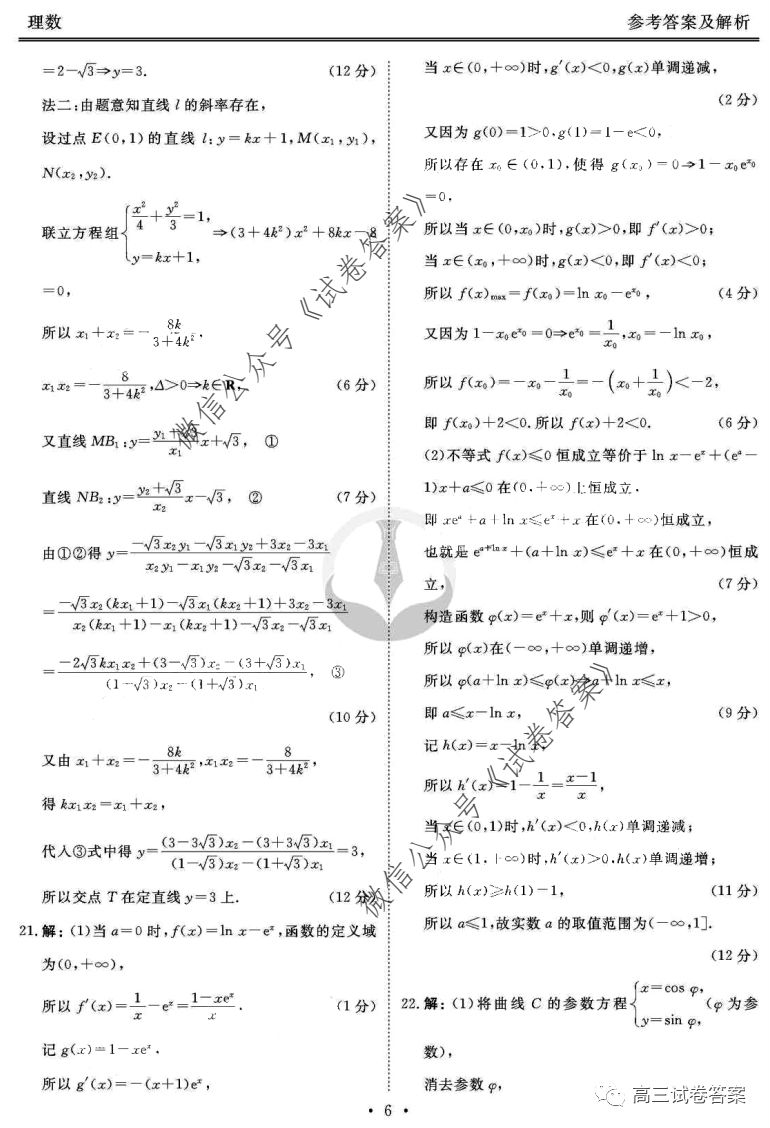 理数
参考答案及解析
=2-√3⇒y=3. (12分)
法二:由题意知直线 l 的斜率存在,
设过点 E(0,1)的直线 l:y=kx+1,M(x₁,y₁),
N(x₂,y₂).
联立方程组{x²/4+y²/3=1, y=kx+1, ⇒(3+4k²)x²+8kx-8
=0,
所以 x₁+x₂=-8k/(3+4k²).
x₁x₂=-8/(3+4k²),Δ>0⇒k∈R, (6分)
又直线 MB₁:y=(y₁+√3)/x₁ x+√3, ①
直线 NB₂:y=(y₂+√3)/x₂ x-√3, ② (7分)
由①②得 y=(-√3x₂y₁-√3x₁y₂+3x₂-3x₁)/(x₂y₁-x₁y₂-√3x₂-√3x₁)
=(-√3x₂(kx₁+1)-√3x₁(kx₂+1)+3x₂-3x₁)/(x₂(kx₁+1)-x₁(kx₂+1)-√3x₂-√3x₁)
=(-2√3kx₁x₂+(3-√3)x₂-(3+√3)x₁)/((1-√3)x₂-(1+√3)x₁), ③
(10分)
又由 x₁+x₂=-8k/(3+4k²),x₁x₂=-8/(3+4k²),
得 kx₁x₂=x₁+x₂,
代入③式中得 y=((3-3√3)x₂-(3+3√3)x₁)/((1-√3)x₂-(1+√3)x₁)=3,
所以交点 T 在定直线 y=3 上. (12分)
21.解:(1)当 a=0 时,f(x)=ln x-eˣ,函数的定义域
为(0,+∞),
所以 f′(x)=1/x-eˣ=(1-xeˣ)/x. (1分)
记 g(x)=1-xeˣ,
所以 g′(x)=-(x+1)eˣ,
当 x∈(0,+∞)时,g′(x)<0,g(x)单调递减,
(2分)
又因为 g(0)=1>0,g(1)=1-e<0,
所以存在 x₀∈(0,1),使得 g(x₀)=0⇒1-x₀e^x₀
=0,
所以当 x∈(0,x₀)时,g(x)>0,即 f′(x)>0;
当 x∈(x₀,+∞)时,g(x)<0,即 f′(x)<0;
所以 f(x)max=f(x₀)=ln x₀-e^x₀, (4分)
又因为 1-x₀e^x₀=0⇒e^x₀=1/x₀,x₀=-ln x₀,
所以 f(x₀)=-x₀-1/x₀=-(x₀+1/x₀)<-2,
即 f(x₀)+2<0.所以 f(x)+2<0. (6分)
(2)不等式 f(x)≤0 恒成立等价于 ln x-eˣ+(eᵃ-
1)x+a≤0 在(0,+∞)上恒成立.
即 xeᵃ+a+ln x≤eˣ+x 在(0,+∞)恒成立,
也就是 e^(a+ln x)+(a+ln x)≤eˣ+x 在(0,+∞)恒成
立, (7分)
构造函数 φ(x)=eˣ+x,则 φ′(x)=eˣ+1>0,
所以 φ(x)在(-∞,+∞)单调递增,
所以 φ(a+ln x)≤φ(x)⇒a+ln x≤x,
即 a≤x-ln x, (9分)
记 h(x)=x-ln x,
所以 h′(x)=1-1/x=(x-1)/x,
当 x∈(0,1)时,h′(x)<0,h(x)单调递减;
当 x∈(1,+∞)时,h′(x)>0,h(x)单调递增;
所以 h(x)≥h(1)=1, (11分)
所以 a≤1,故实数 a 的取值范围为(-∞,1].
(12分)
22.解:(1)将曲线 C 的参数方程{x=cos φ, y=sin φ, (φ 为参
数),
消去参数 φ,
微信公众号《试卷答案》
微信公众号《试卷答案》
高三试卷答案
• 6 •